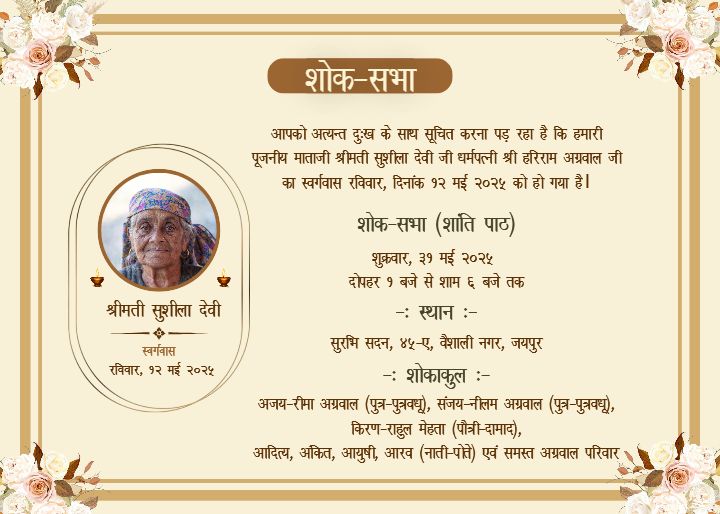 शोक-सभा
आपको अत्यन्त दुःख के साथ सूचित करना पड़ रहा है कि हमारी
पूजनीय माताजी श्रीमती सुशीला देवी जी धर्मपत्नी श्री हरिराम अग्रवाल जी
का स्वर्गवास रविवार, दिनांक १२ मई २०२५ को हो गया है।
श्रीमती सुशीला देवी
स्वर्गवास
रविवार, १२ मई २०२५
शोक-सभा (शांति पाठ)
शुक्रवार, ३१ मई २०२५
दोपहर १ बजे से शाम ६ बजे तक
-: स्थान :-
सुरभि सदन, ४५-ए, वैशाली नगर, जयपुर
-: शोकाकुल :-
अजय-रीमा अग्रवाल (पुत्र-पुत्रवधू), संजय-नीलम अग्रवाल (पुत्र-पुत्रवधू),
किरण-राहुल मेहता (पौत्री-दामाद),
आदित्य, अंकित, आयुषी, आरव (नाती-पोते) एवं समस्त अग्रवाल परिवार